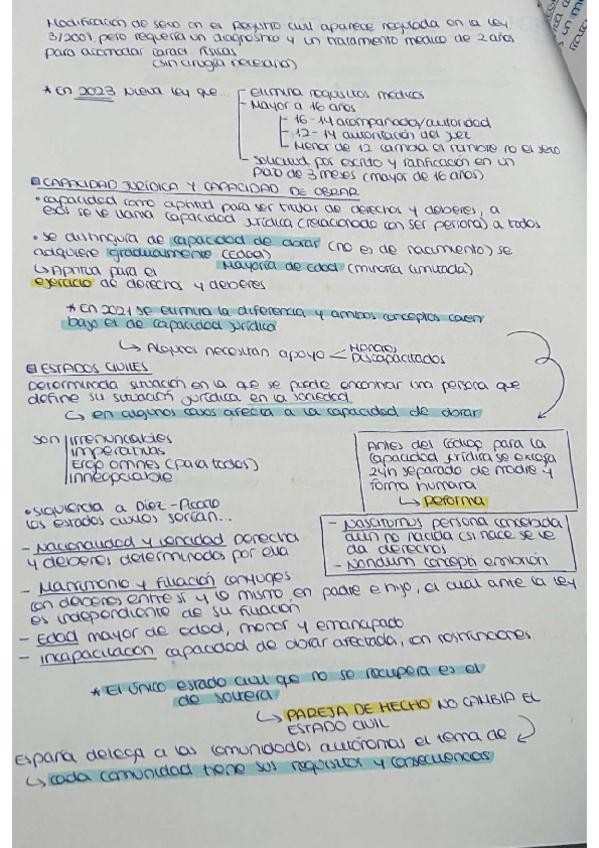 Modificación de sexo en el Registro civil aparece regulada en la ley
3/2007, pero requería un diagnóstico y un tratamiento médico de 2 años
para acomodar caract. físicas.
(sin cirugía necesaria)
* en 2023 Nueva ley que...
elimina requisitos médicos
Mayor a 16 años
16-14 acompañados/autoridad
12-14 autorización del juez
Menor de 12 cambia el nombre no el sexo
Solicitud por escrito y ratificación en un
plazo de 3 meses (mayor de 16 años)
CAPACIDAD JURÍDICA Y CAPACIDAD DE OBRAR
• capacidad como aptitud para ser titular de derechos y deberes, a
esos se le llama capacidad jurídica (relacionado con ser persona) a todos
• se distinguía de capacidad de obrar (no es de nacimiento) se
adquiere gradualmente (Edad)
Mayoría de Edad (minoría limitada)
↳ Aptitud para el
ejercicio de derechos y deberes
* En 2021 se elimina la diferencia y ambos conceptos caen
bajo el de capacidad jurídica
↳ Algunos necesitan apoyo
Menores
Discapacitados
ESTADOS CIVILES
Determinada situación en la que se puede encontrar una persona que
define su situación jurídica en la sociedad
↳ en algunos casos afecta a la capacidad de obrar
son
irrenunciables
imperativas
Ergo omnes (para todos)
innegociable
Antes del código para la
capacidad jurídica se exigía
24h separado de madre y
forma humana
↳ Reforma
• siguiendo a Díez-Picazo
los estados civiles serían...
- Nasciturus persona concebida
aun no nacida (si nace se le
da derechos
- Nondum concepti embrión
- Nacionalidad y vecindad derechos
y deberes determinados por ella
- Matrimonio y filiación cónyuges
con deberes entre sí y lo mismo en padre e hijo, el cual ante la ley
es independiente de su filiación
- Edad mayor de edad, menor y emancipado
- incapacitación capacidad de obrar afectada, con restricciones
* El único estado civil que no se recupera es el
de soltera
↳ PAREJA DE HECHO NO CAMBIA EL
ESTADO CIVIL
España delega a las comunidades autónomas el tema de
↳ cada comunidad tiene sus requisitos y consecuencias